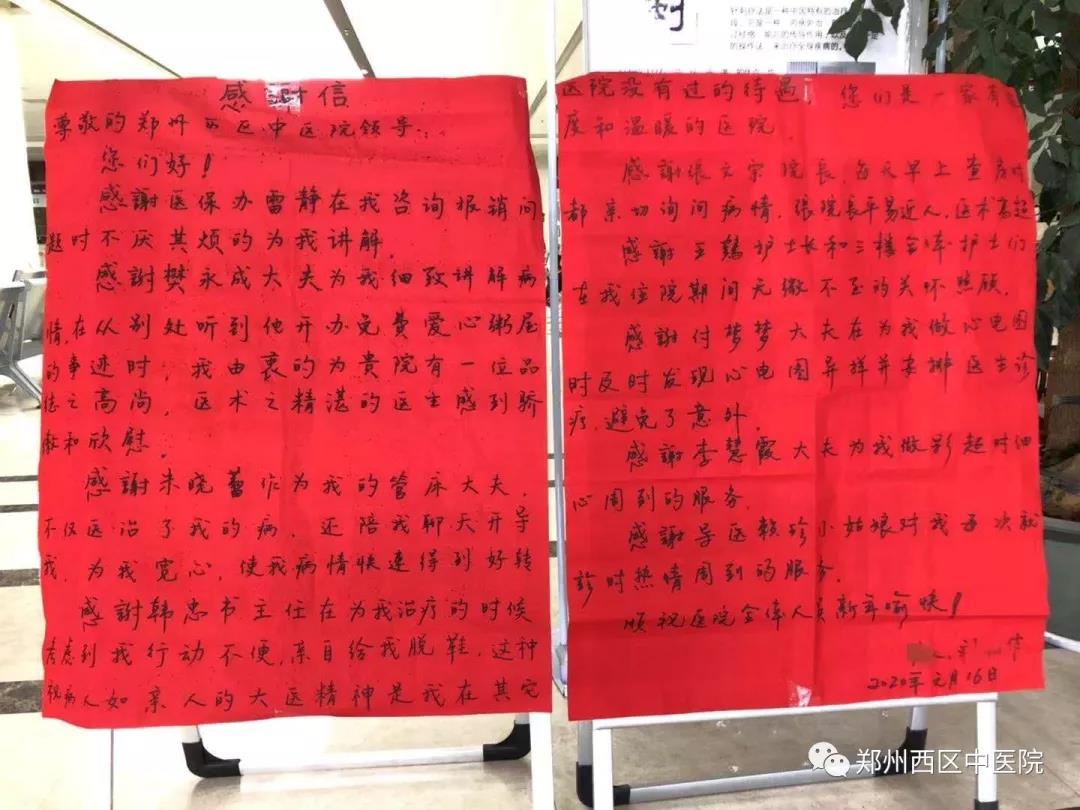 感謝信
尊敬的郑州西区中医院领导：
您们好！
感謝医保办雷静在我咨询报销问
题时不厌其烦的为我讲解.
感謝樊永成大夫为我细致讲解病
情,在从别处听到他开办免费爱心粥屋
的事迹时，我由衷的为貴院有一位品
德之高尚，医术之精湛的医生感到骄
傲和欣慰.
感謝朱晓蕾作为我的管床大夫，
不仅医治了我的病，还陪我聊天开导
我，为我宽心，使我病情快速得到好转
感謝韩忠书主任在为我治疗的时候
考虑到我行动不便，亲自给我脱鞋，这种
视病人如亲人的大医精神是我在其它
针刺疗法是一种中国特有的治疗
刺
医院没有过的待遇，您们是一家有
度和温暖的医院.
感謝張文宗院長，每天早上查房时
都亲切询问病情，張院長平易近人，医术高超
感謝王鶏护士长和三楼全体护士们
在我住院期间无微不至的关怀照顾.
感謝付梦梦大夫在为我做心电图
时及时发现心电图异样并安排医生诊
疗，避免了意外.
感謝李慧霞大夫为我做彩超时细
心周到的服务.
感謝导医赖珍小姑娘对我每次就
診时热情周到的服务.
顺祝医院全体人员新年愉快！
2020年元月16日
郑州西区中医院